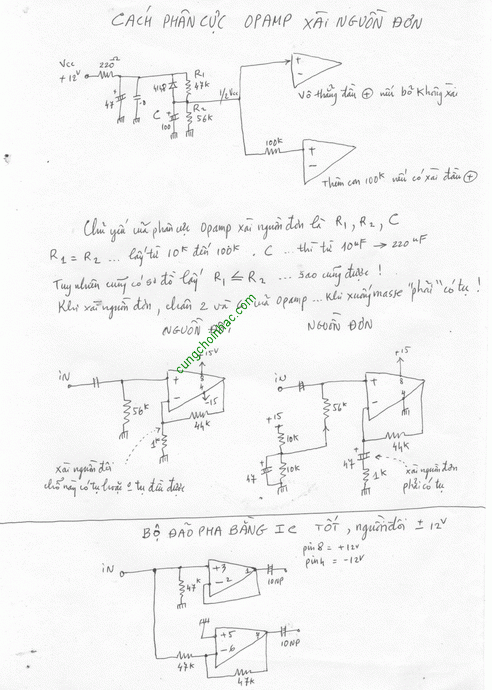 CÁCH PHÂN CỰC OPAMP XÀI NGUỒN ĐƠN
Vcc
+12V
220Ω
47
4148
R1
47K
R2
56K
C
100
1/2 Vcc
+
−
Vô thẳng đầu ⊕ nếu bỏ không xài
100K
+
−
Thêm con 100K nếu có xài đầu ⊕
Chủ yếu của phân cực Opamp xài nguồn đơn là R1, R2, C
R1 = R2 ... lấy từ 10K đến 100K. C ... thì từ 10uF → 220uF
Tuy nhiên cũng có sơ đồ lấy R1 ≤ R2 ... sao cũng được!
Khi xài nguồn đơn, chân 2 và 6 của opamp ... khi xuống masse "phải" có tụ!
NGUỒN ĐÔI
NGUỒN ĐƠN
cungchoinhac.com
iN
56K
+
−
+15V
8
4
-15
44K
1K
xài nguồn đôi
chỗ này có tụ hoặc 0 tụ đều được
iN
56K
+15
10K
10K
47
+
−
+15
8
4
44K
47
1K
xài nguồn đơn
phải có tụ
BỘ ĐẢO PHA BẰNG IC TỐT, nguồn đôi ± 12V
pin 8 = +12V
pin 4 = -12V
iN
47K
+3
-2
1
10NP
+5
-6
7
10NP
47K
47K